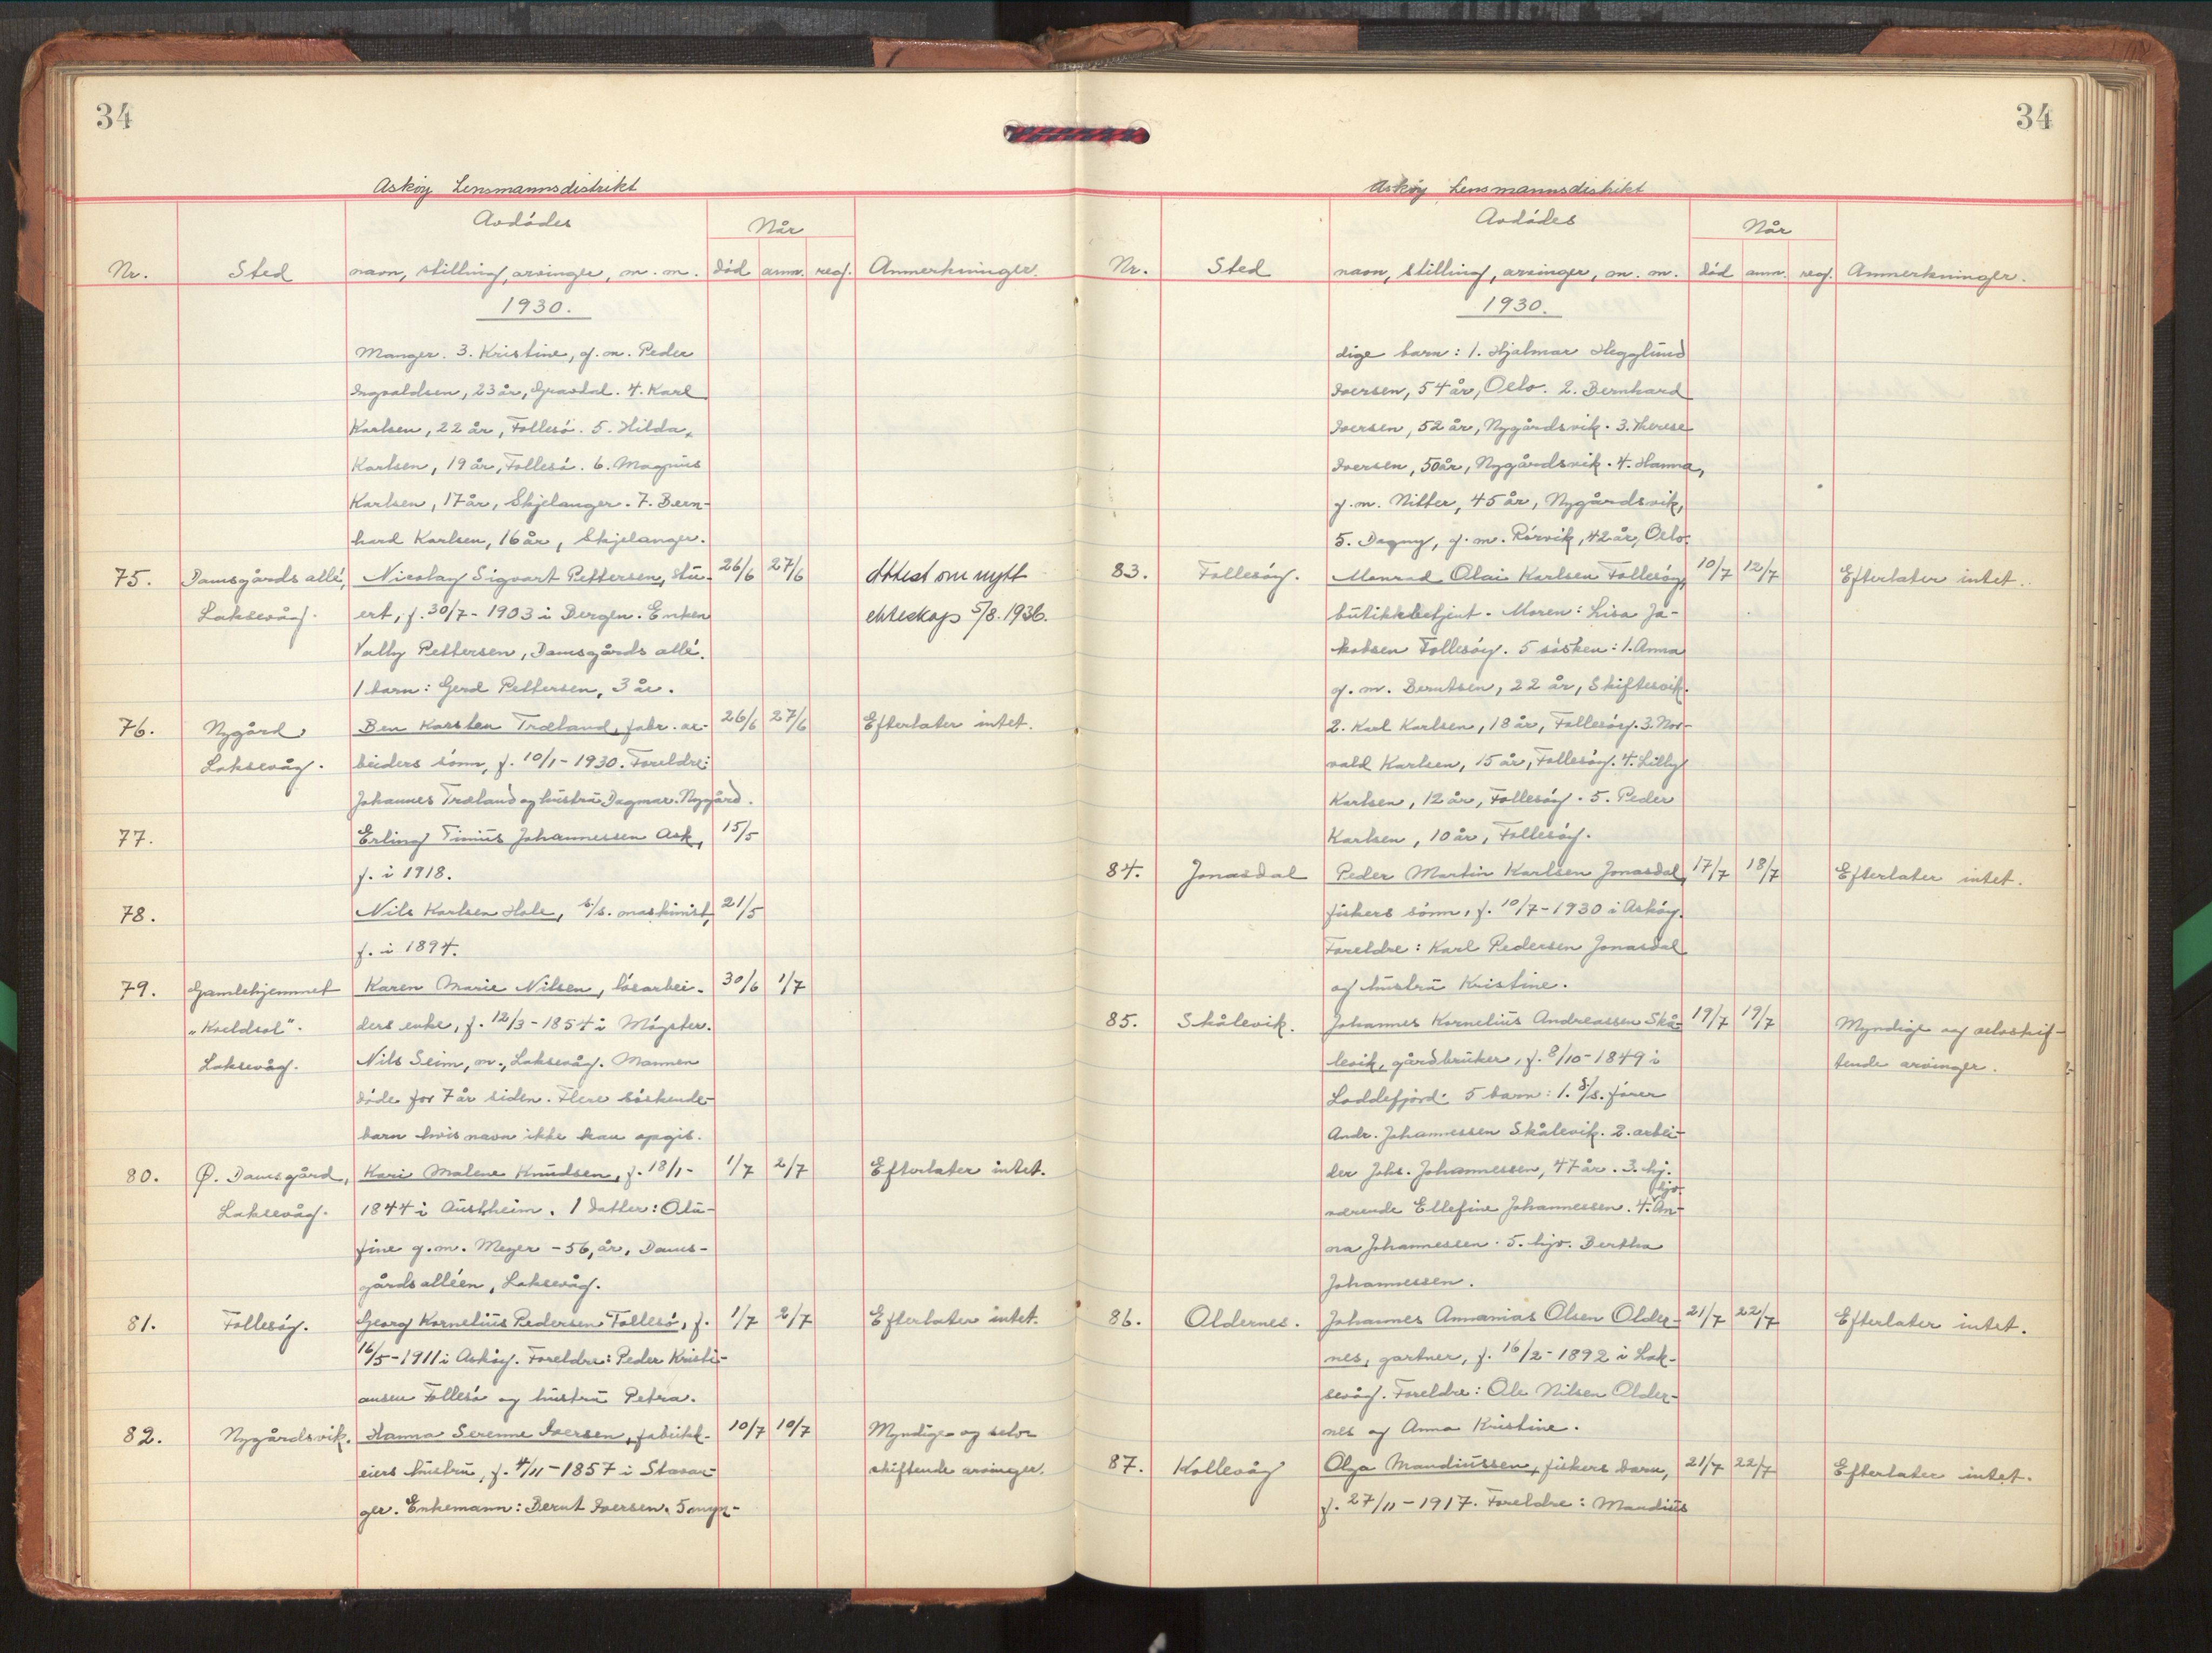 34
Askøy Lensmannsdistrikt
Avdødes
Når
Nr. Sted navn, stilling, arvinger, m. m. død anm. reg. Anmerkninger.
1930.
Manger. 3. Kristine, g. m. Peder
Ingvaldsen, 23 år, Gravdal. 4. Karl
Karlsen, 22 år, Follesø. 5. Hilda
Karlsen, 19 år, Follesø. 6. Magnus
Karlsen, 17 år, Skjelanger. 7. Bern-
hard Karlsen, 16 år, Skjelanger.
75. Damsgårds allé, Nicolay Sigvart Pettersen, stu- 26/6 27/6 Attest om nytt
Laksevåg. ert, f. 30/7 - 1903 i Bergen. Enken ekteskap 5/8. 1936.
Vally Pettersen, Damsgårds allé.
1 barn: Gerd Pettersen, 3 år.
76. Nygård Ben Karsten Træland, fabr. ar- 26/6 27/6 Efterlater intet.
Laksevåg. beiders sønn, f. 10/1 - 1930. Foreldre:
Johannes Træland og hustru Dagmar. Nygård.
77. Erling Timius Johannessen Ask, 15/5
f. i 1918.
78. Nils Karlsen Hole, s/s. maskinist, 21/5
f. i 1894.
79. Gamlehjemmet Karen Marie Nilsen, løsarbei- 30/6 1/7
"Kveldsol". ders enke, f. 12/3 - 1854 i Møgster.
Laksevåg. Nils Seim, m., Laksevåg. Mannen
døde for 7 år siden. Flere søskende-
barn hvis navn ikke kan opgis.
80. Ø. Damsgård, Kari Malene Knudsen, f. 18/1 - 1/7 2/7 Efterlater intet.
Laksevåg. 1844 i Austrheim. 1 datter: Olu-
fine g. m. Meyer - 56, år, Dams-
gårds alléen, Laksevåg.
81. Follesøy. Georg Kornelius Pedersen Follesø, f. 1/7 2/7 Efterlater intet.
16/5 - 1911 i Askøy. Foreldre: Peder Kristi-
ansen Follesø og hustru Petra.
82. Nygårdsvik. Hanna Serenne Iversen, fabrikk- 10/7 10/7 Myndige og selv
eiers hustru, f. 4/11 - 1857 i Stavan- skiftende arvinger.
ger. Enkemann: Bernt Iversen. 5 myn-
34
Askøy Lensmannsdistrikt
Avdødes
Når
Nr. Sted navn, stilling, arvinger, m. m. død anm. reg. Anmerkninger.
1930.
dige barn: 1. Hjalmar Hegglund
Iversen, 54 år, Oslo. 2. Bernhard
Iversen, 52 år, Nygårdsvik. 3. Therese
Iversen, 50 år, Nygårdsvik. 4. Hanna,
g. m. Nitter, 45 år, Nygårdsvik,
5. Dagny, g. m. Rørvik, 42 år, Oslo.
83. Follesøy. Monrad Olai Karlsen Follesøy, 10/7 12/7 Efterlater intet.
butikkbetjent. Moren: Lisa Ja-
kobsen Follesøy. 5 søsken: 1. Anna
g. m. Berntsen, 22 år, Skiftesvik.
2. Karl Karlsen, 18 år, Follesøy. 3. Nor-
vald Karlsen, 15 år, Follesøy. 4. Lilly
Karlsen, 12 år, Follesøy. 5. Peder
Karlsen, 10 år, Follesøy.
84. Jonasdal Peder Martin Karlsen Jonasdal, 17/7 18/7 Efterlater intet.
fiskers sønn, f. 10/7 - 1930 i Askøy.
Foreldre: Karl Pedersen Jonasdal
og hustru Kristine.
85. Skålevik. Johannes Kornelius Andreassen Skå- 19/7 19/7 Myndige og selvskif-
levik, gårdbruker, f. 8/10 - 1849 i tende arvinger.
Loddefjord. 5 barn: 1. s/s. fører
Andr. Johannessen Skålevik. 2. arbei-
der Johs. Johannessen, 47 år. 3. hj.
værende Ellefine Johannessen. 4. hjv. An-
na Johannessen. 5. hjv. Bertha
Johannessen.
86. Oldernes. Johannes Annanias Olsen Older- 21/7 22/7 Efterlater intet.
nes, gartner, f. 16/2 - 1892 i Lak-
sevåg. Foreldre: Ole Nilsen Older-
nes og Anna Kristine.
87. Kollevåg Olga Mandiussen, fiskers barn, 21/7 22/7 Efterlater intet.
f. 27/11 - 1917. Foreldre: Mandius